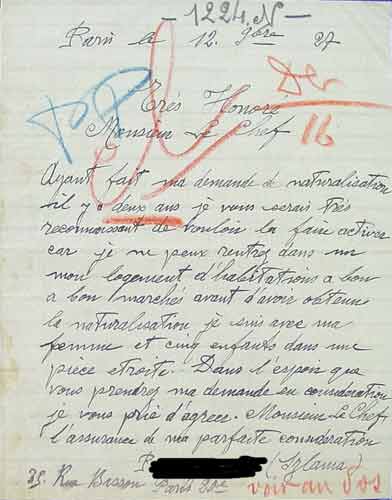 -1224.N-
Paris le 12. 9bre 27
Très Honoré
Monsieur Le Chef
Der
16
Ayant fait ma demande de naturalisation
il y a deux ans je vous serais très
reconnaissant de vouloir la faire activer
car je ne peux rentrez dans un
mon logement d'habitations a bon
a bon marché avant d'avoir obtenu
la naturalisation, je suis avec ma
femme et cinq enfants dans une
pièce etroite. Dans l'espoir que
vous prendrez ma demande en considération
je vous prié d'agréer. Monsieur Le Chef
l'assurance de ma parfaite considération
(Szlama)
39. Rue Bisson Paris 20e
voir au dos